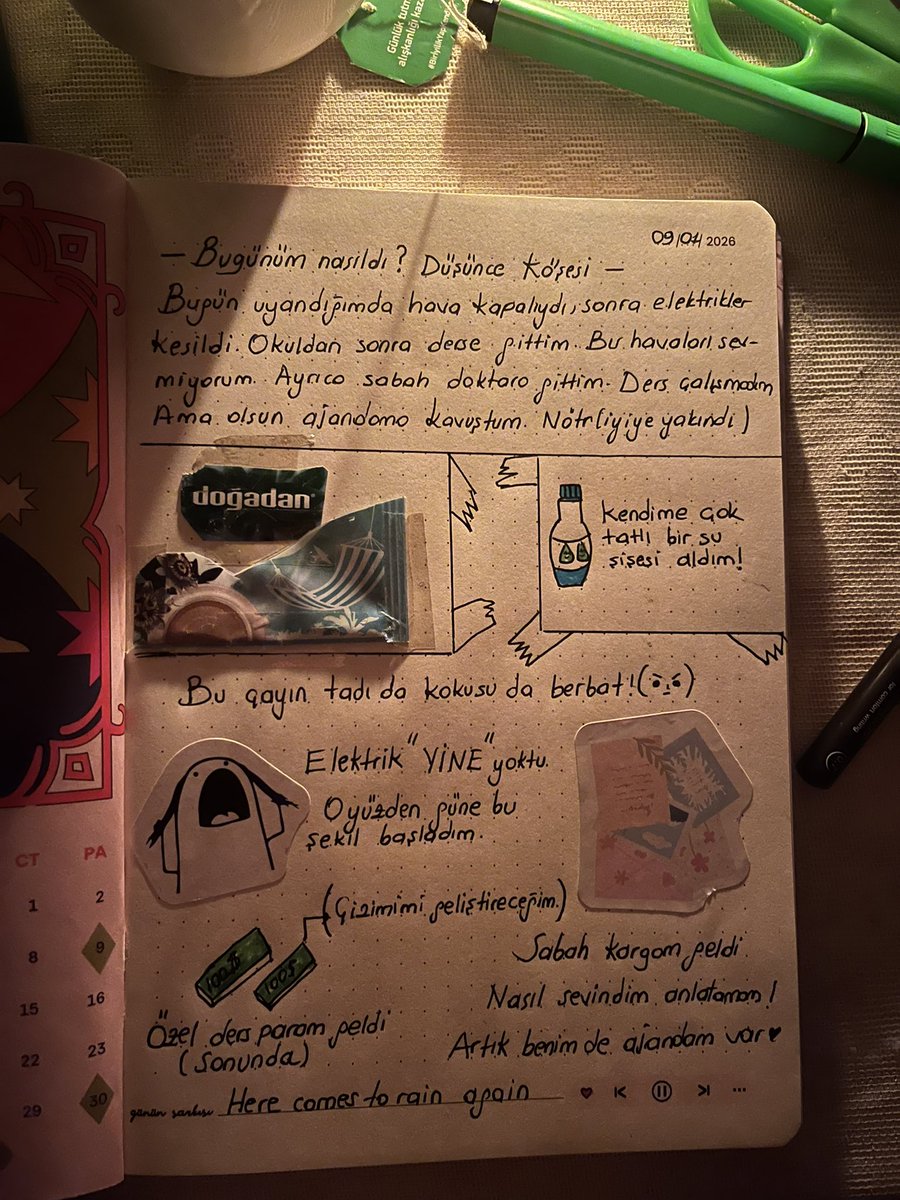 Günlük tutma
alışkanlığı kaza
09/01 2026
— Bugünüm nasıldı? Düşünce Köşesi —
Bugün uyandığımda hava kapalıydı, sonra elektrikler
kesildi. Okuldan sonra derse gittim. Bu havaları sev-
miyorum. Ayrıca sabah doktora gittim. Ders çalışmadım
Ama olsun ajandama kavuştum. Nötr(iyiye yakındı)
doğadan
Kendime çok
tatlı bir su
şişesi aldım!
Bu çayın tadı da kokusu da berbat!
Elektrik "YİNE" yoktu.
O yüzden güne bu
şekil başladım.
(Çizimimi geliştireceğim.)
100₺
100$
Sabah kargom geldi
Nasıl sevindim anlatamam!
Özel ders param geldi
(Sonunda)
Artık benim de ajandam var♥
günün şarkısı Here comes to rain again
CT PA
1 2
8 9
15 16
22 23
29 30
for comfort writing